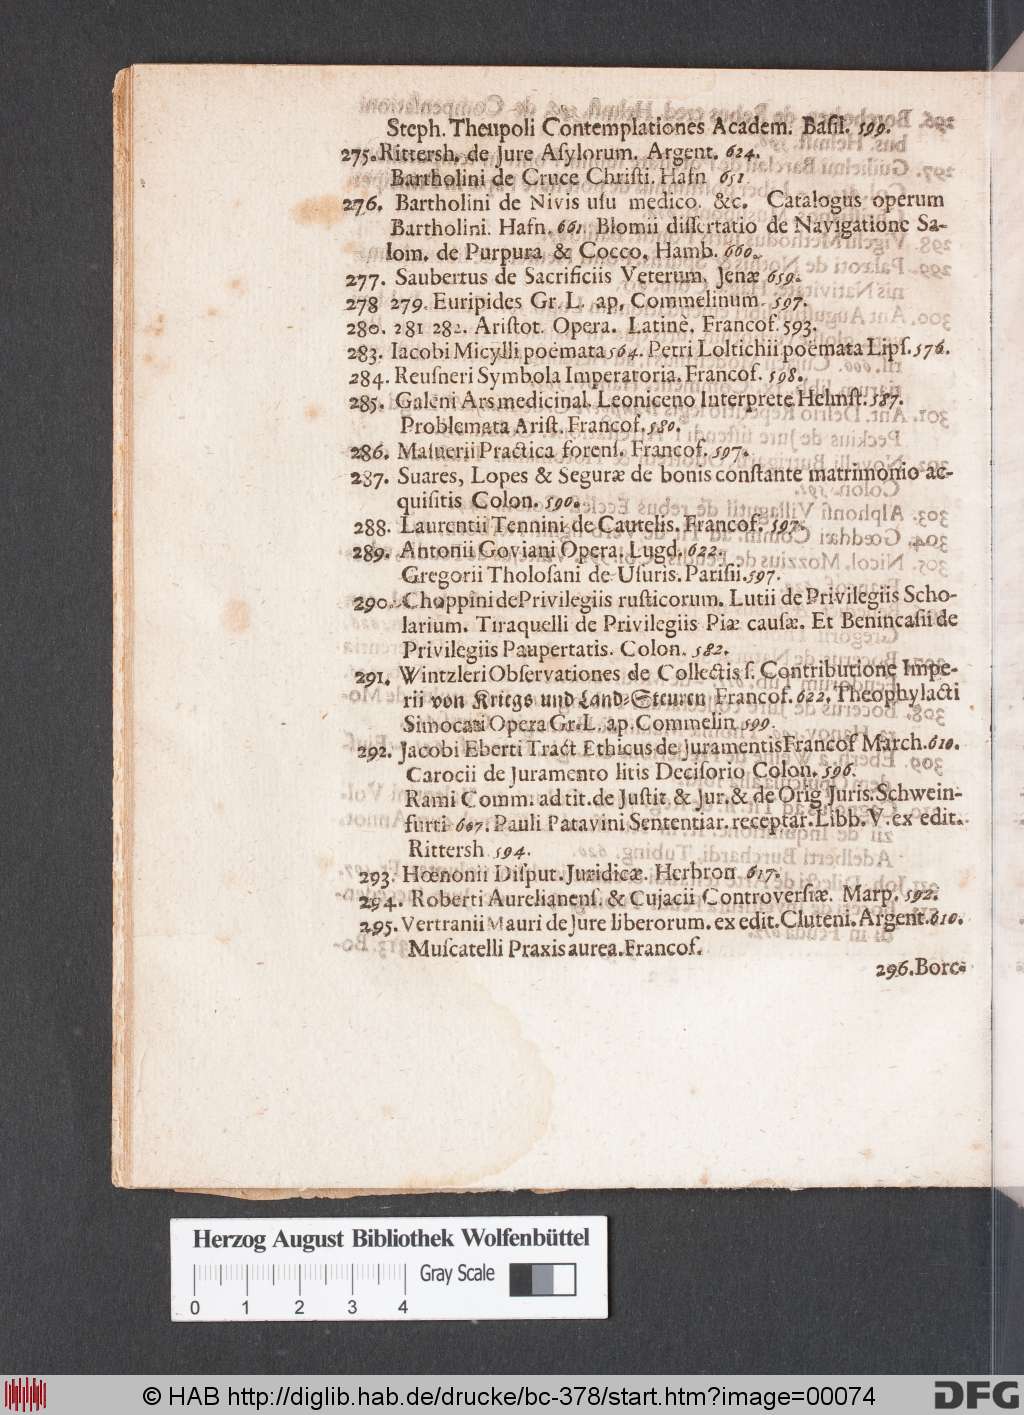 Steph. Theupoli Contemplationes Academ. Baſil. 599.
275. Rittersh. de Jure Aſylorum. Argent. 624.
Bartholini de Cruce Chriſti. Hafn 651
276. Bartholini de Nivis uſu medico. &c. Catalogus operum
Bartholini. Hafn. 661. Blomii diſſertatio de Navigatione Sa-
lom. de Purpura & Cocco, Hamb. 660.
277. Saubertus de Sacrificiis Veterum. Jenæ 659.
278 279. Euripides Gr. L. ap. Commelinum. 597.
280. 281 282. Ariſtot. Opera. Latinè. Francof. 593.
283. Iacobi Micylli poëmata 564. Petri Loltichii poëmata Lipſ. 576.
284. Reuſneri Symbola Imperatoria. Francof. 598.
285. Galeni Ars medicinal. Leoniceno Interprete Helmſt. 587.
Problemata Ariſt. Francof. 580.
286. Maſuerii Practica forenſ. Francof. 597.
287. Suares, Lopes & Seguræ de bonis conſtante matrimonio ac-
quiſitis Colon. 590.
288. Laurentii Tennini de Cautelis. Francof. 597.
289. Antonii Goviani Opera. Lugd. 622.
Gregorii Tholoſani de Uſuris. Pariſii. 597.
290. Choppini de Privilegiis ruſticorum. Lutii de Privilegiis Scho-
larium. Tiraquelli de Privilegiis Piæ cauſæ. Et Benincaſii de
Privilegiis Paupertatis. Colon. 582.
291. Wintzleri Obſervationes de Collectis ſ. Contributione Impe-
rii von Kriegs und Land-Steuren Francof. 622. Theophylacti
Simocati Opera Gr. L. ap. Commelin 599.
292. Jacobi Eberti Tract Ethicus de Juramentis Francof March. 610.
Carocii de Juramento litis Deciſorio Colon. 596.
Rami Comm. ad tit. de Juſtit & Jur. & de Orig Juris. Schwein-
furti 607. Pauli Patavini Sententiar. receptar. Libb. V. ex edit.
Rittersh 594.
293. Hœnonii Diſput. Juridicæ. Herbron 617.
294. Roberti Aurelianenſ. & Cujacii Controverſiæ. Marp. 592.
295. Vertranii Mauri de Jure liberorum. ex edit. Cluteni. Argent. 610.
Muſcatelli Praxis aurea. Francof.
296. Borc-
Herzog August Bibliothek Wolfenbüttel
Gray Scale
0 1 2 3 4
© HAB http://diglib.hab.de/drucke/bc-378/start.htm?image=00074
DFG